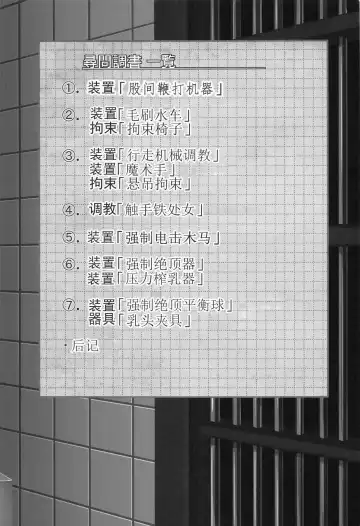 尋問調書一覧
①．装置「股间鞭打机器」
②．装置「毛刷水车」
拘束「拘束椅子」
③．装置「行走机械调教」
装置「魔术手」
拘束「悬吊拘束」
④．调教「触手铁处女」
⑤．装置「强制电击木马」
⑥．装置「强制绝顶器」
装置「压力榨乳器」
⑦．装置「强制绝顶平衡球」
器具「乳头夹具」
·后记